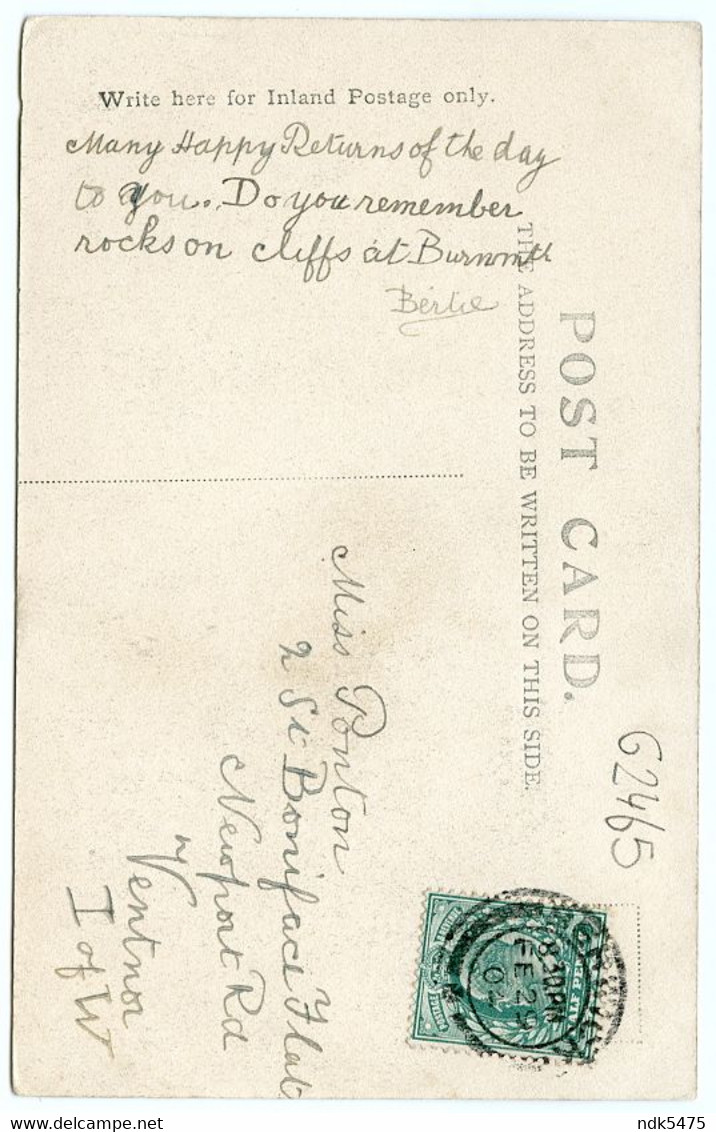 Write here for Inland Postage only.
Many Happy Returns of the day
to you. Do you remember
rocks on cliffs at Burnmth
Bertie
POST CARD.
THE ADDRESS TO BE WRITTEN ON THIS SIDE.
Miss Ponton
2 St Boniface Flat
Newport Rd
Ventnor
I of W
8.30PM
FE 29
04
delcampe.net
ndk5475